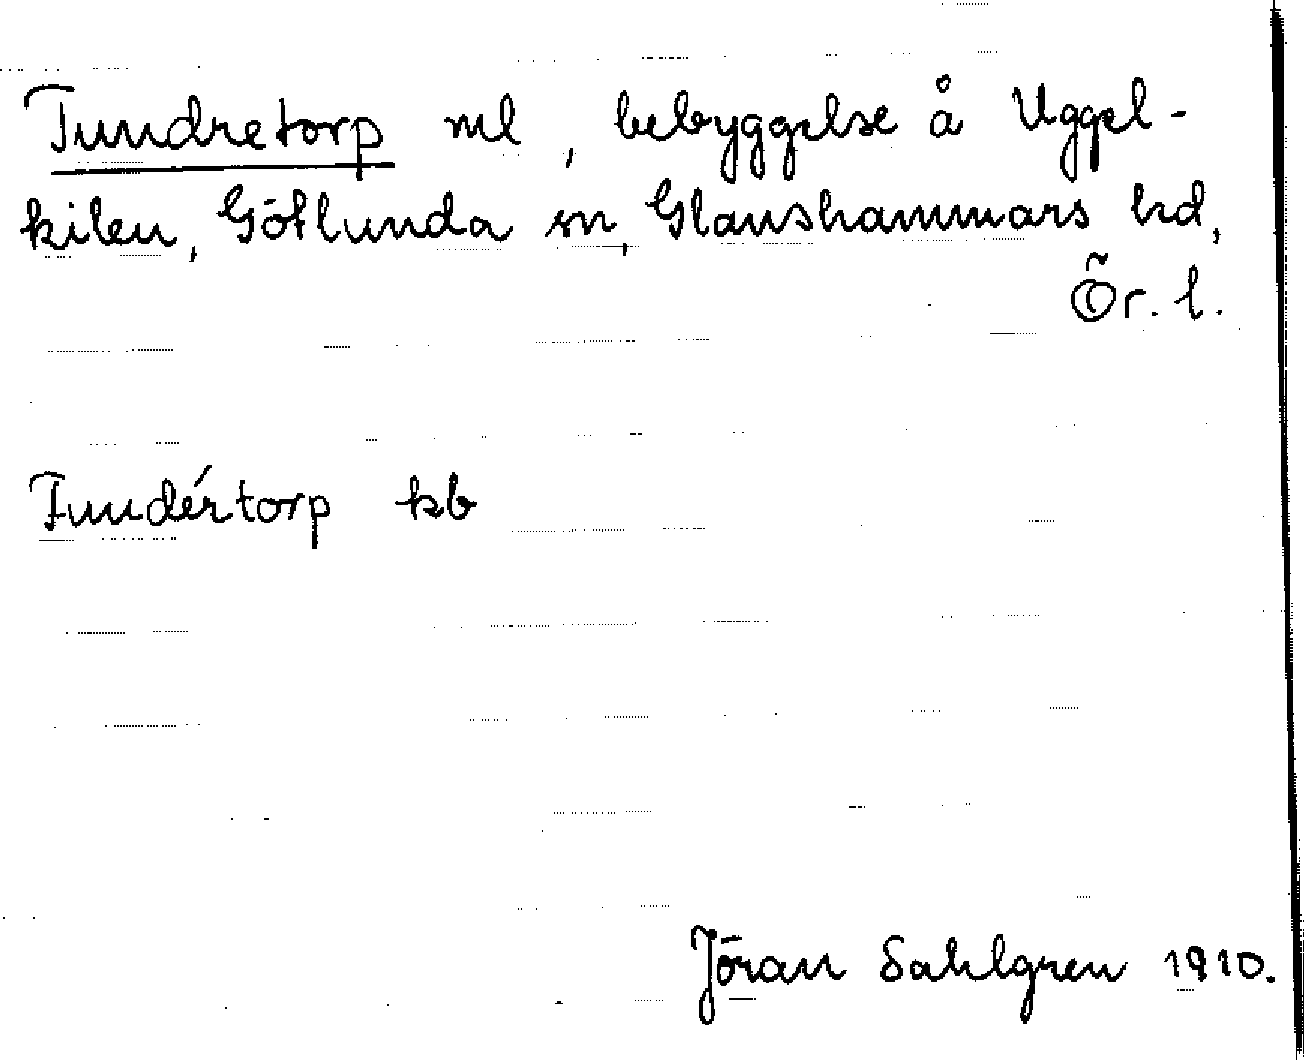 Tundretorp ml, bebyggelse å Uggel-
kilen, Götlunda sn, Glanshammars hd,
Ör. l.
Tundértorp kb
Jöran Sahlgren 1910.